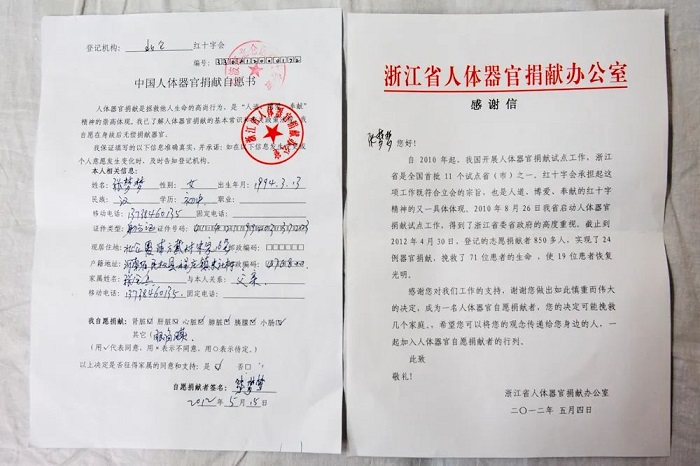 登记机构： 红十字会
编号：
中国人体器官捐献自愿书
人体器官捐献是拯救他人生命的高尚行为，是“人道、博爱、奉献”
精神的崇高体现。我已了解人体器官捐献的基本常识和
自愿在身故后无偿捐献器官。
我保证填写的以下信息准确真实，并承诺：如在以下信息发生
个人意愿发生变化时，及时告知登记机构。
本人相关信息：
姓名：张梦梦 性别：女 出生年月：1994.3.13
民族：汉 学历：初中 职业：
移动电话：13738460135 固定电话：
证件类型：身份证 证件号码：
现居住地： 邮政编码：
户籍地址： 邮政编码：
家属姓名： 与本人关系：父亲
移动电话：13738460135 固定电话：
我自愿捐献：肾脏√ 肝脏√ 心脏√ 肺脏√ 胰腺√ 小肠√
其它（眼角膜）
（用√代表同意，用×表示不同意，用○表示待定。）
以上决定是否征得家属的同意和支持：是√ 否□
自愿捐献者签名：张梦梦
2012年5月15日
浙江省人体器官捐献办公室
浙江省人体器官捐献办公室
感谢信
张梦梦 您好！
自 2010 年起，我国开展人体器官捐献试点工作，浙江
省是全国首批 11 个试点省（市）之一。红十字会承担起这
项工作既符合立会的宗旨，也是人道、博爱、奉献的红十字
精神的又一具体体现。2010 年 8 月 26 日我省启动人体器官
捐献试点工作，得到了浙江省委省政府的高度重视。截止到
2012 年 4 月 30 日，登记的志愿捐献者 850 多人，实现了 24
例器官捐献，挽救了 71 位患者的生命 ，使 19 位患者恢复
光明。
感谢您对我们工作的支持，谢谢您做出如此慎重而伟大
的决定，成为一名人体器官自愿捐献者，您的决定可能挽救
几个家庭。希望您可以将您的观念传递给您身边的人，一
起加入人体器官自愿捐献者的行列。
此致
敬礼！
浙江省人体器官捐献办公室
二〇一二年 五月四日